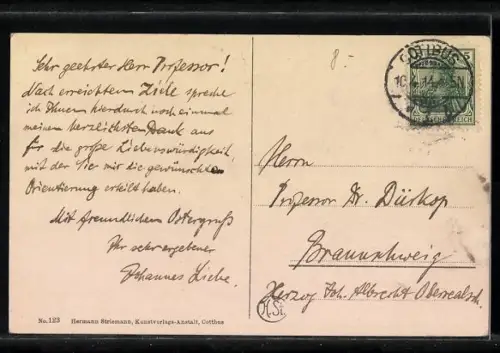 Sehr geehrter Herr Professor!
Nach erreichtem Ziele spreche
ich Ihnen hierdurch noch einmal
meinen herzlichsten Dank aus
für die große Liebenswürdigkeit,
mit der Sie mir die gewünschten
Orientierung erteilt haben.
Mit freundlichem Ostergruß
Ihr sehr ergebener
Johannes
No. 123 Hermann Striemann, Kunstverlags-Anstalt, Cottbus
8.-
COTTBUS
10. 14
5
Herrn
Professor Dr. Dürkop
Braunschweig
Herzog Joh. Albrecht Oberrealsch.